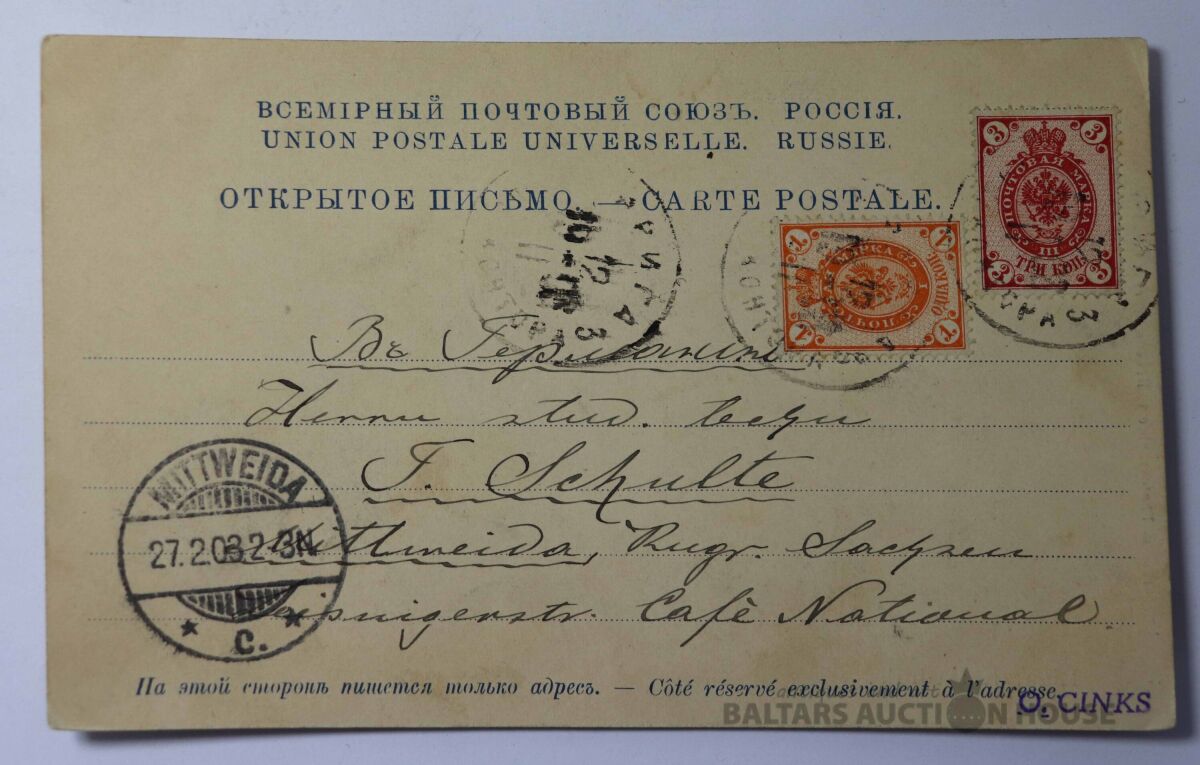 ВСЕМІРНЫЙ ПОЧТОВЫЙ СОЮЗЪ. РОССІЯ.
UNION POSTALE UNIVERSELLE. RUSSIE.
ОТКРЫТОЕ ПИСЬМО. — CARTE POSTALE.
3 3
ПОЧТОВАЯ МАРКА
III
ТРИ КОП.
3 3
1 1
МАРКА
1 1
РИГА 3
Въ Германію
Herrn stud. techn
F. Schulte
Mittweida, Kngr. Sachsen
Café National
MITTWEIDA
27.2.03 2-3N
* C. *
На этой сторонѣ пишется только адресъ. — Côté réservé exclusivement à l'adresse.
O. CINKS
BALTARS AUCTION HOUSE